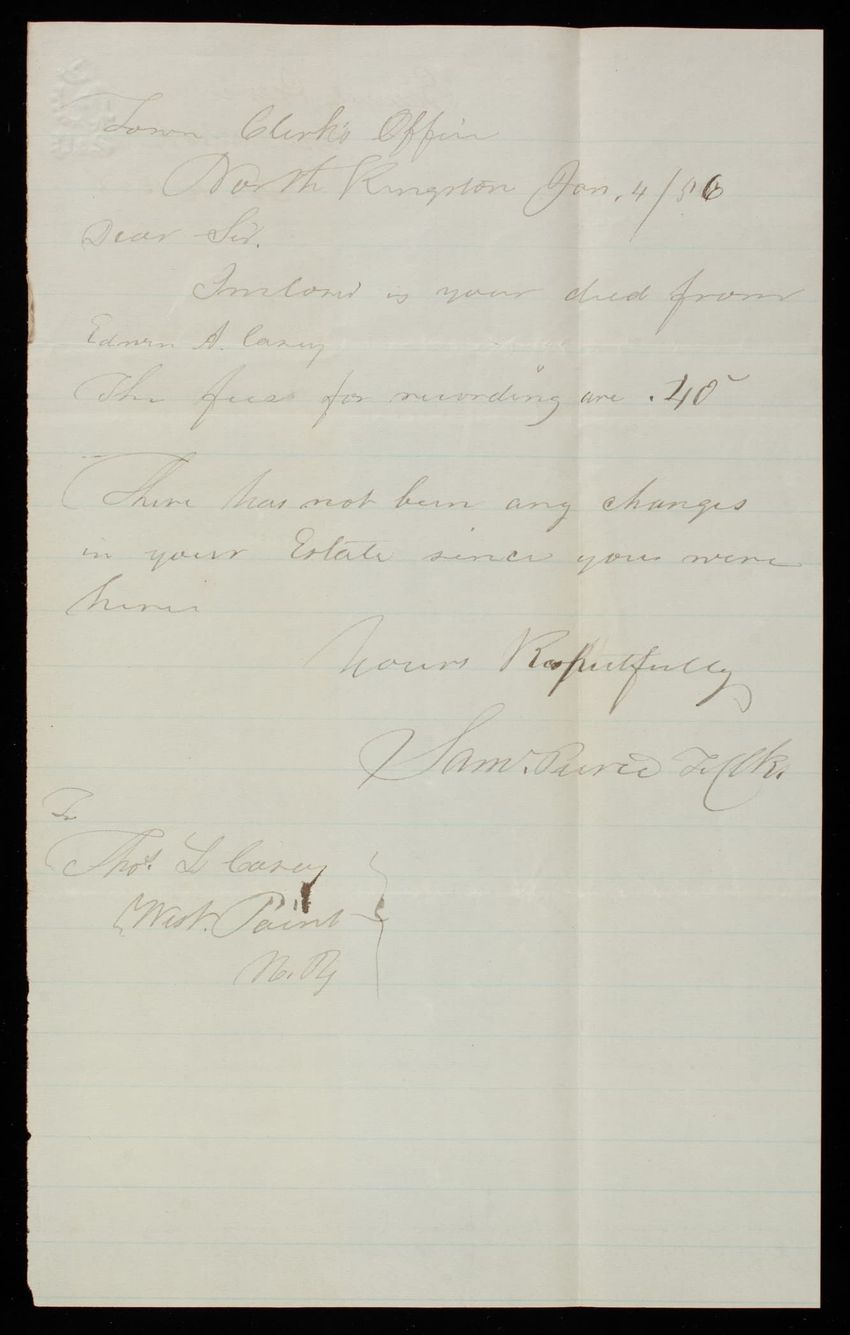 Town Clerk's Office
North Kingston Jan. 4/56
Dear Sir.
Inclosed is your deed from
Edwin A. Casey
The fees for recording are .40
There has not been any changes
in your Estate since you were
here
Yours Respectfully
Saml. Pierce T. Clk.
To
Thos. L Casey
West. Point
N. Y